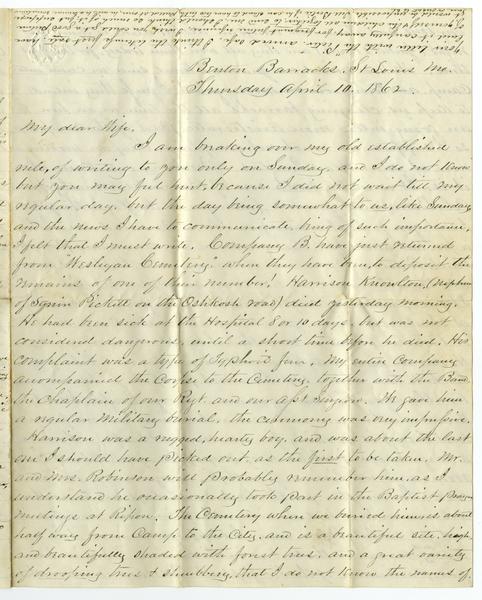 Benton Barracks, St Louis Mo.
Thursday April 10. 1862.
My dear Wife.
I am breaking over my old established
rules, of writing to you only on Sunday, and I do not know
but you may feel hurt, because I did not wait till my
regular day, but the day being somewhat to us, like Sunday
and the news I have to communicate, being of such importance,
I felt that I must write. Company B. have just returned
from "Wesleyan Cemetery" where they have been to deposit the
remains of one of their number. Harrison Knowlton, (nephew
of Squire Pickett on the Oshkosh road) died yesterday morning.
He had been sick at the Hospital 8 or 10 days, but was not
considered dangerous, until a short time before he died. His
complaint was a type of Typhoid fever. My entire Company
accompanied the Corpse to the Cemetery, together with the Band
the Chaplain of our Regt. and our Asst Surgeon. We gave him
a regular Military burial, the ceremony was very impressive.
Harrison was a rugged, hearty boy, and was about the last
one I should have picked out, as the first to be taken. Mr.
and Mrs. Robinson will probably remember him, as I
understand he occasionally took part in the Baptist Prayer
meetings at Ripon. The Cemetery where we buried him is about
half way from Camp to the City, and is a beautiful site, high
and beautifully shaded with forest trees, and a great variety
of drooping trees & shrubbery, that I do not know the names of.